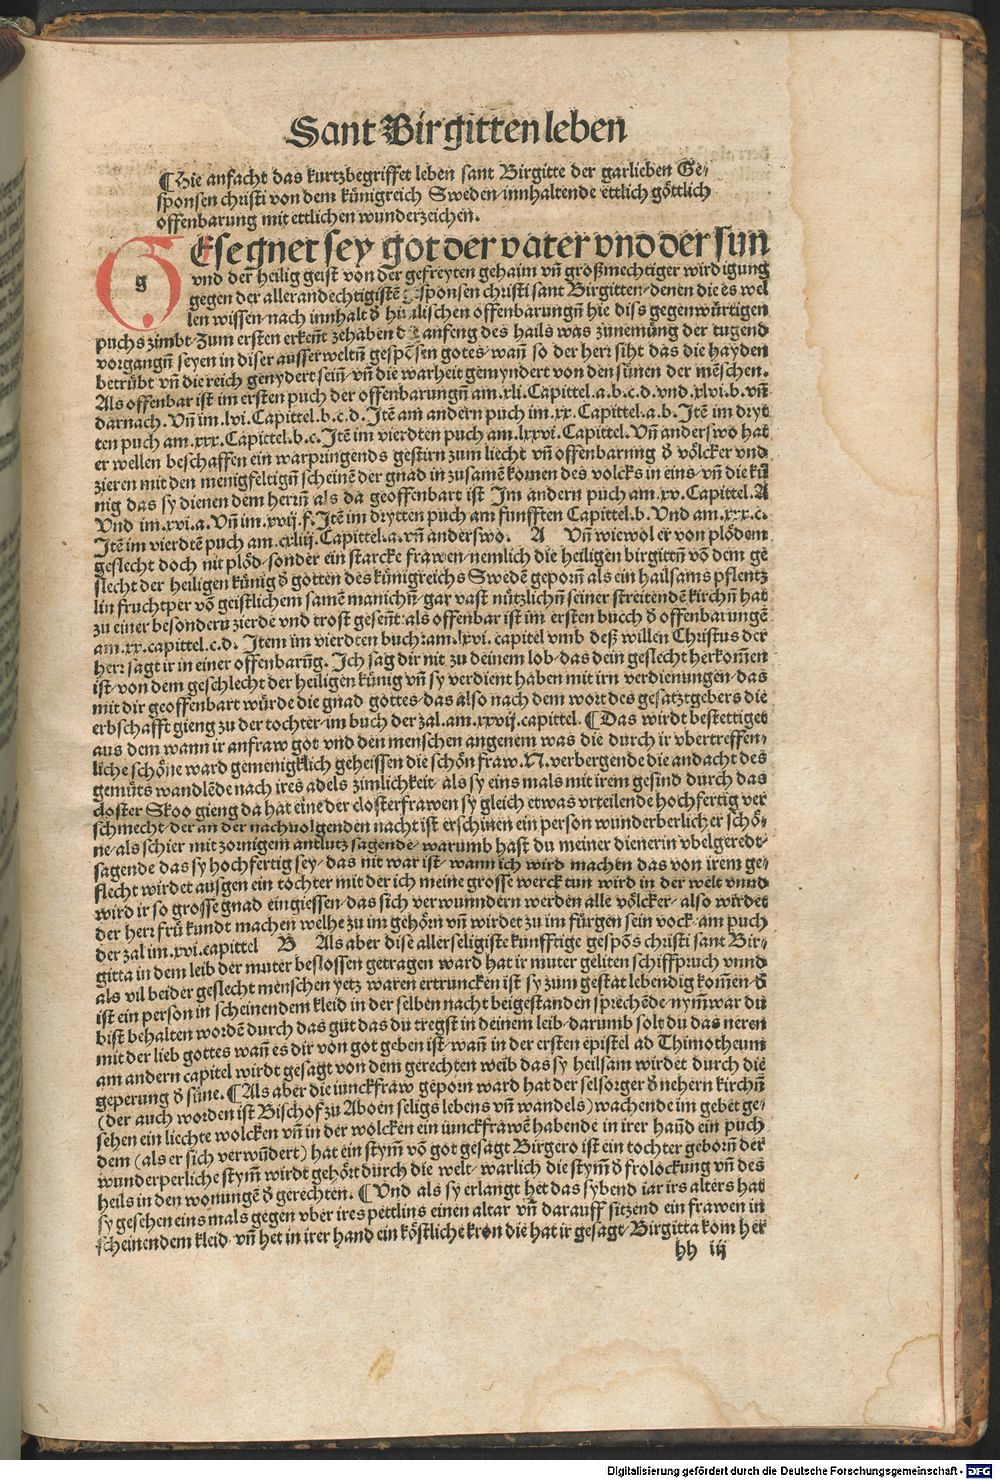 Sant Birgitten leben
¶Hie anfacht das kurtzbegriffet leben sant Birgitte der garlieben Ge⸗
sponsen christi von dem künigreich Sweden/innhaltende ettlich göttlich
offenbarung mit ettlichen wunderzeichen.
GEsegnet sey got der vater vnd der sun
g
vnd der heilig geist von der gefreyten gehaim vn̄ großmechtiger wirdigung
gegen der allerandechtigistē sponsen christi sant Birgitten/denen die es wel
len wissen/nach innhalt d̄ hīm̄lischen offenbarungn̄ hie diss gegenwürtigen
puchs zimbt/Zum ersten erkeñt zehaben anfeng des hails was zunemūng der tugend
vorgangn̄ seyen in diser ausserweltn̄ gespōsen gotes/wan̄ so der herr siht das die hayden
betrübt vn̄ die reich genydert sein̄/vn̄ die warheit gemyndert von den sünen der mēschen.
Als offenbar ist im ersten puch der offenbarungn̄ am.xli.Capittel.a.b.c.d.vnd.xlvi.b.vn̄
darnach.Vn̄ im.lvi.Capittel.b.c.d.Itē am andern puch im.xx.Capittel.a.b.Itē im dryt
ten puch am.xxx.Capittel.b.c.Itē im vierdten puch am.lxxvi.Capittel.Vn̄ anderswo hat
er wellen beschaffen ein warpringends gestirn zum liecht vn̄ offenbarung d̄ völcker vnd
zieren mit den menigfeltign̄ scheinē der gnad in zusamē komen des volcks in eins/vn̄ die kü
nig das sy dienen dem herrn̄ als da geoffenbart ist Im andern puch am.xv.Capittel.A
Vnd im.xvi.a.Vn̄ im.xvij.f.Itē im drytten puch am funfften Capittel.b.Vnd am.xxx.c.
Itē im vierdtē puch am.cxliij.Capittel.a.vn̄ anderswo. A Vn̄ wiewol er von plödem
geslecht doch nit plöd/sonder ein starcke frawen/nemlich die heiligen birgittn̄ vō dem ge
slecht der heiligen künig d̄ gotten des künigreichs Swedē geporn̄ als ein hailsams pflentz
lin fruchtper vō geistlichem samē manichn̄/gar vast nützlichn̄ seiner streitendē kirchn̄ hat
zu einer besondern zierde vnd trost gesent̄:als offenbar ist im ersten bucch d̄ offenbarungē
am.xx.capittel.c.d. Itēm im vierdten buch:am.lxvi.capitel vmb deß willen Christus der
herr sagt ir in einer offenbarūg. Ich sag dir nit zu deinem lob/das dein geslecht herkom̄en
ist/von dem geschlecht der heiligen künig vn̄ sy verdient haben mit irn verdienungen/das
mit dir geoffenbart würde die gnad gottes/das also nach dem wort des gesatztgebers die
erbschafft gieng zu der tochter/im buch der zal.am.xxvij.capittel.¶Das wirdt bestettiget
aus dem wann ir anfraw got vnd den menschen angenem was die durch ir vbertreffen⸗
liche schöne ward gemenigklich geheissen die schön fraw.N.verbergende die andacht des
gemüts wandlēde nach ires adels zimlichkeit/als sy eins mals mit irem gesind durch das
closter Skoo gieng da hat eine der closterfrawen sy gleich etwas vrteilende hochfertig ver
schmecht/der an der nachuolgenden nacht ist erschinen ein person wunderberlicher schö⸗
ne/als schier mit zornigem antlutz sagende/warumb hast du meiner dienerin vbelgeredt⸗
sagende das sy hochfertig sey/das nit war ist/wann ich wird machen das von irem ge⸗
slecht wirdet ausgen ein tochter mit der ich meine grosse werck tun wird in der welt vnnd
wird ir so grosse gnad eingiessen/das sich verwunndern werden alle völcker/also wirdet
der herr frü kundt machen welhe zu im gehörn vn̄ wirdet zu im fürgen sein vock/am puch
der zal im.xvi.capittel B Als aber dise allerseligiste kunfftige gespōs christi sant Bir⸗
gitta in dem leib der muter beslossen getragen ward hat ir muter geliten schiffpruch vnnd
als vil beider geslecht menschen yetz waren ertruncken ist sy zum gestat lebendig kom̄en/d̄
ist ein person in scheinendem kleid in der selben nacht beigestanden sprechēde/nym̄war du
bist behalten wordē durch das gut das du tregst in deinem leib/darumb solt du das neren
mit der lieb gottes wan̄ es dir von got geben ist/wan̄ in der ersten epistel ad Thimotheum
am andern capitel wirdt gesagt von dem gerechten weib das sy heilsam wirdet durch die
geperung d̄ süne.¶Als aber die iunckfraw geporn ward hat der selsorger d̄ nehern kirchn̄
(der auch worden ist Bischof zu Aboen seligs lebens vn̄ wandels)wachende im gebet ge⸗
sehen ein liechte wolcken vn̄ in der wolcken ein iunckfrawē habende in irer han̄d ein puch
dem (als er sich verwūdert) hat ein stym̄ vō got gesagt Birgero ist ein tochter geborn̄ der
wunderperliche stym̄ wirdt gehört durch die welt/warlich die stym̄ d̄ frolöckung vn̄ des
heils in den wonungē d̄ gerechten.¶Vnd als sy erlangt het das sybend iar irs alters hat
sy gesehen eins mals gegen vber ires pettlins einen altar vn̄ darauff sitzend ein frawen in
scheinendem kleid/vn̄ het in irer hand ein köstliche kron die hat ir gesagt/Birgitta kom her
hh iij
Digitalisierung gefördert durch die Deutsche Forschungsgemeinschaft - DFG